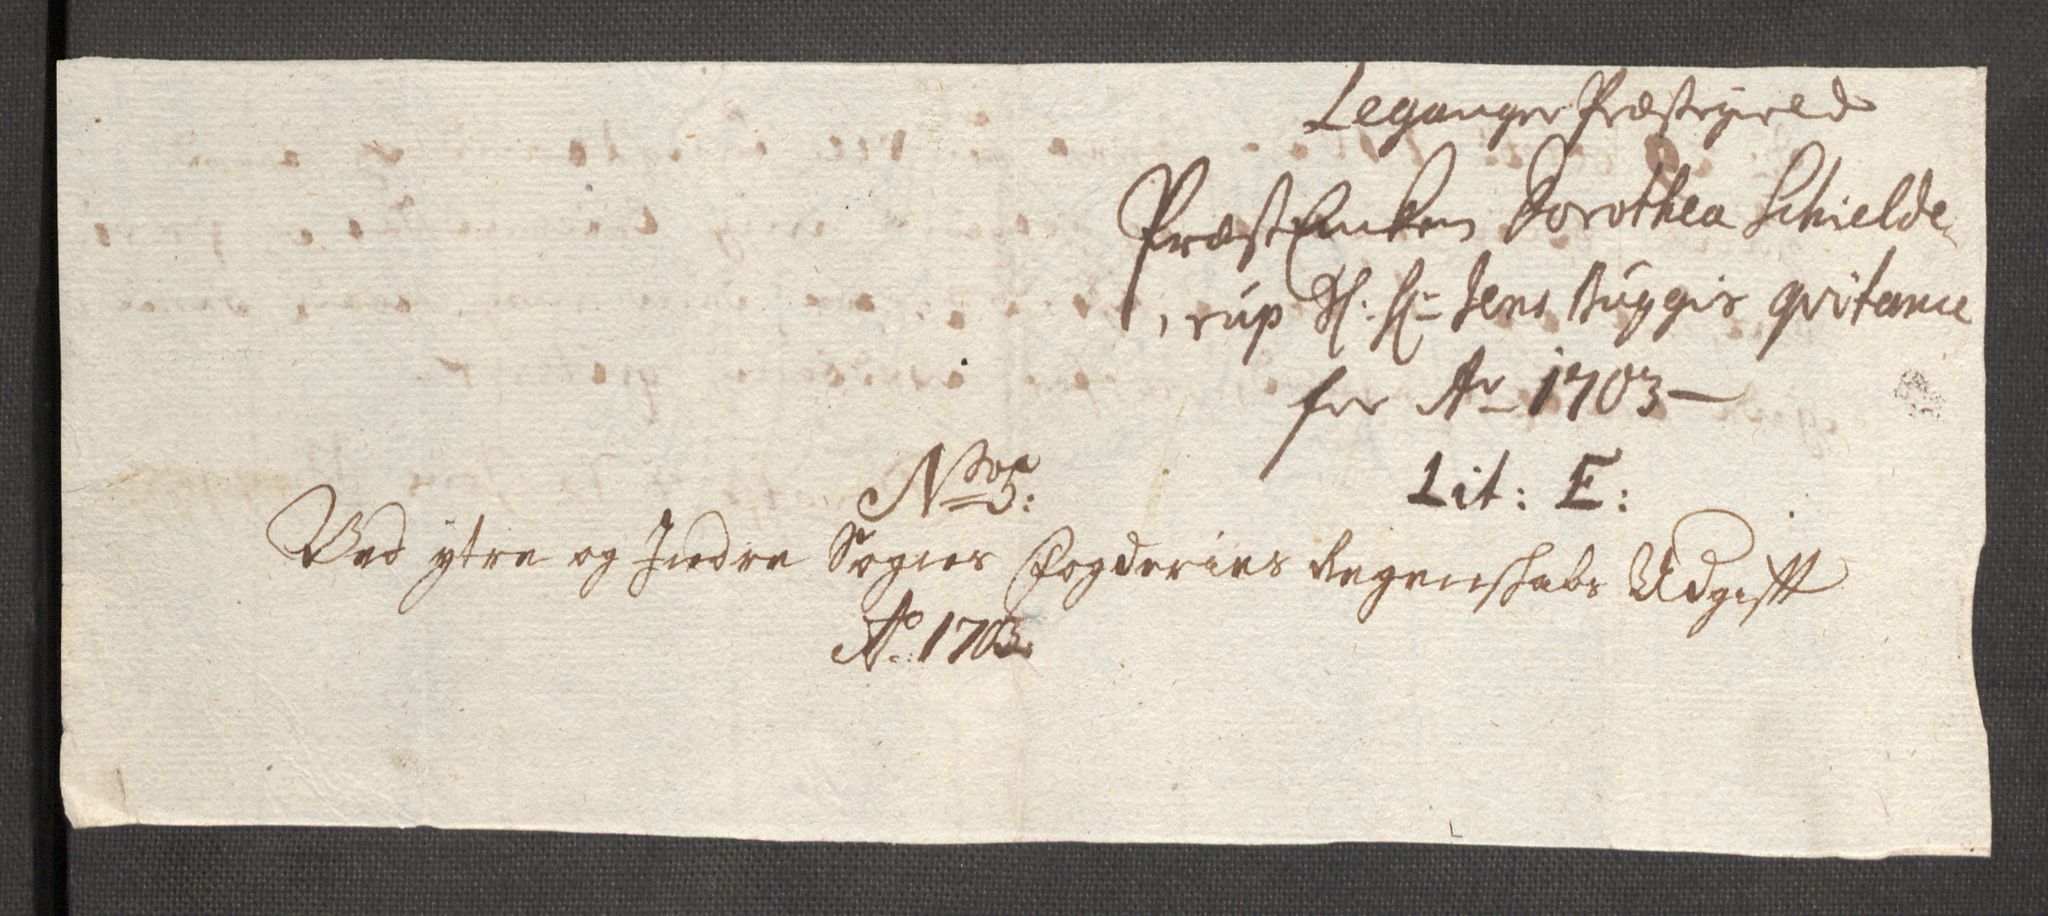 Leganger Præstegield
PræstEncken Dorothea Schielde-
rup Sl: Hr Jens Buggis qvitance
for Ao 1703
Lit: E:
No 5:
Ved ytre og Indre Sognes Fogderies Regenschabs Udgifft
Ao: 1703.